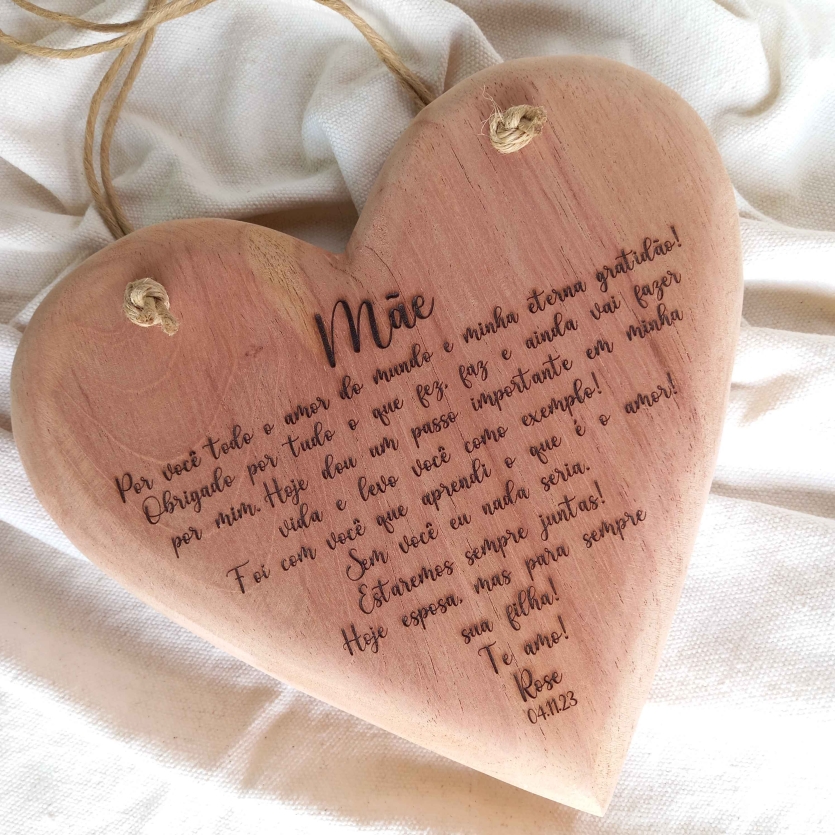 Mãe
Por você todo o amor do mundo e minha eterna gratidão!
Obrigado por tudo o que fez, faz e ainda vai fazer
por mim. Hoje dou um passo importante em minha
vida e levo você como exemplo!
Foi com você que aprendi o que é o amor!
Sem você eu nada seria.
Estaremos sempre juntas!
Hoje esposa, mas para sempre
sua filha!
Te amo!
Rose
04.11.23